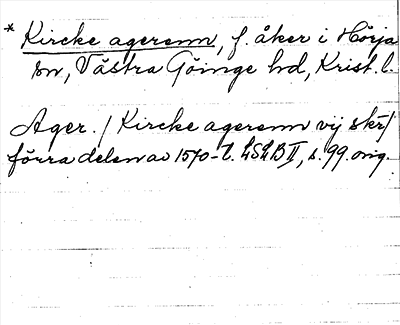 * Kircke agerenn, f. åker i Hörja
sn, Västra Göinge hd, Krist. l.
Ager. / Kircke agerenn vij skr/
förra delen av 1570-t. LSLB II, s. 99. orig.